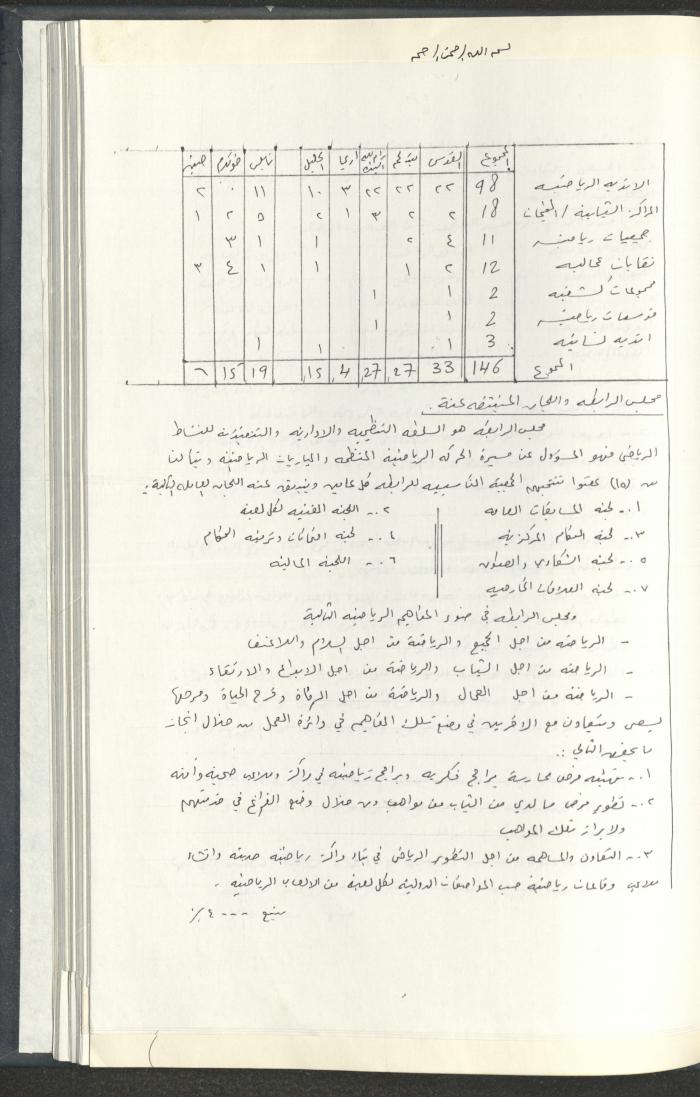 بسم الله الرحمن الرحيم
المجموع القدس بيت لحم رام الله البيره اريحا الخليل نابلس طولكرم جنين
الانديه الرياضيه 98 ٢٢ ٢٢ ٢٢ ٣ ١٠ ١١ ٠ ٢
المراكز الشبابيه / المخيمات 18 ٢ ٢ ٣ ١ ٢ ٥ ٢ ١
جمعيات رياضيه 11 ٤ ٢ ١ ١ ٣
نقابات عماليه 12 ٢ ١ ١ ١ ٤ ٣
مجموعات كشفيه 2 ١ ١
مؤسسات رياضيه 2 ١ ١
انديه نسائيه 3 ١ ١ ١
المجموع 146 33 27 27 4 15 19 15 ٦
مجلس الرابطه واللجان المنبثقه عنه .
مجلس الرابطه هو السلطه التنظيميه والاداريه والتنفيذيه للنشاط
الرياضي فهو المسؤول عن مسيرة الحركه الرياضيه المنظمه والمباريات الرياضيه ويتألف
من (١٥) عضوا تنتخبهم الهيئه التأسيسيه للرابطه كل عامين وينبثق عنه اللجان العامله التاليه :
١.- لجنه المسابقات العامه ٢.- اللجنه الفنيه لكل لعبة
٣.- لجنه الحكام المركزيه ٤.- لجنه الكفاءات وترقيه الحكام
٥.- لجنه الشكاوي والعقوبات ٦.- اللجنه الماليه
٧.- لجنه العلاقات الخارجيه
ومجلس الرابطه في ضوء المفاهيم الرياضيه التالية
- الرياضه من اجل الجميع والرياضة من اجل السلام واللاعنف
- الرياضه من اجل الشباب والرياضة من اجل الابداع والارتقاء
- الرياضة من اجل العمال والرياضة من اجل الرفاة وفرح الحياة ومرحها
يسعى ويتعاون مع الاخرين في وضع تلك المفاهيم في دائرة العمل من خلال انجاز
ما يحقق التالي :.
١.- تهيئه فرص ممارسة برامج فكريه وبرامج رياضيه في مراكز وملاعب صحيه وأمنه
٢.- تطوير فرص ما لدي من الشباب من مواهب ومن خلال وضع البرامج في خدمتهم
ولابراز تلك المواهب
٣.- التعاون والمساهمه من اجل التطوير الرياضي في بناء مراكز رياضيه حديثه وانشاء
ملاعب وقاعات رياضية حسب المواصفات الدوليه لكل لعبة من الالعاب الرياضيه .
يتبع --- ٤